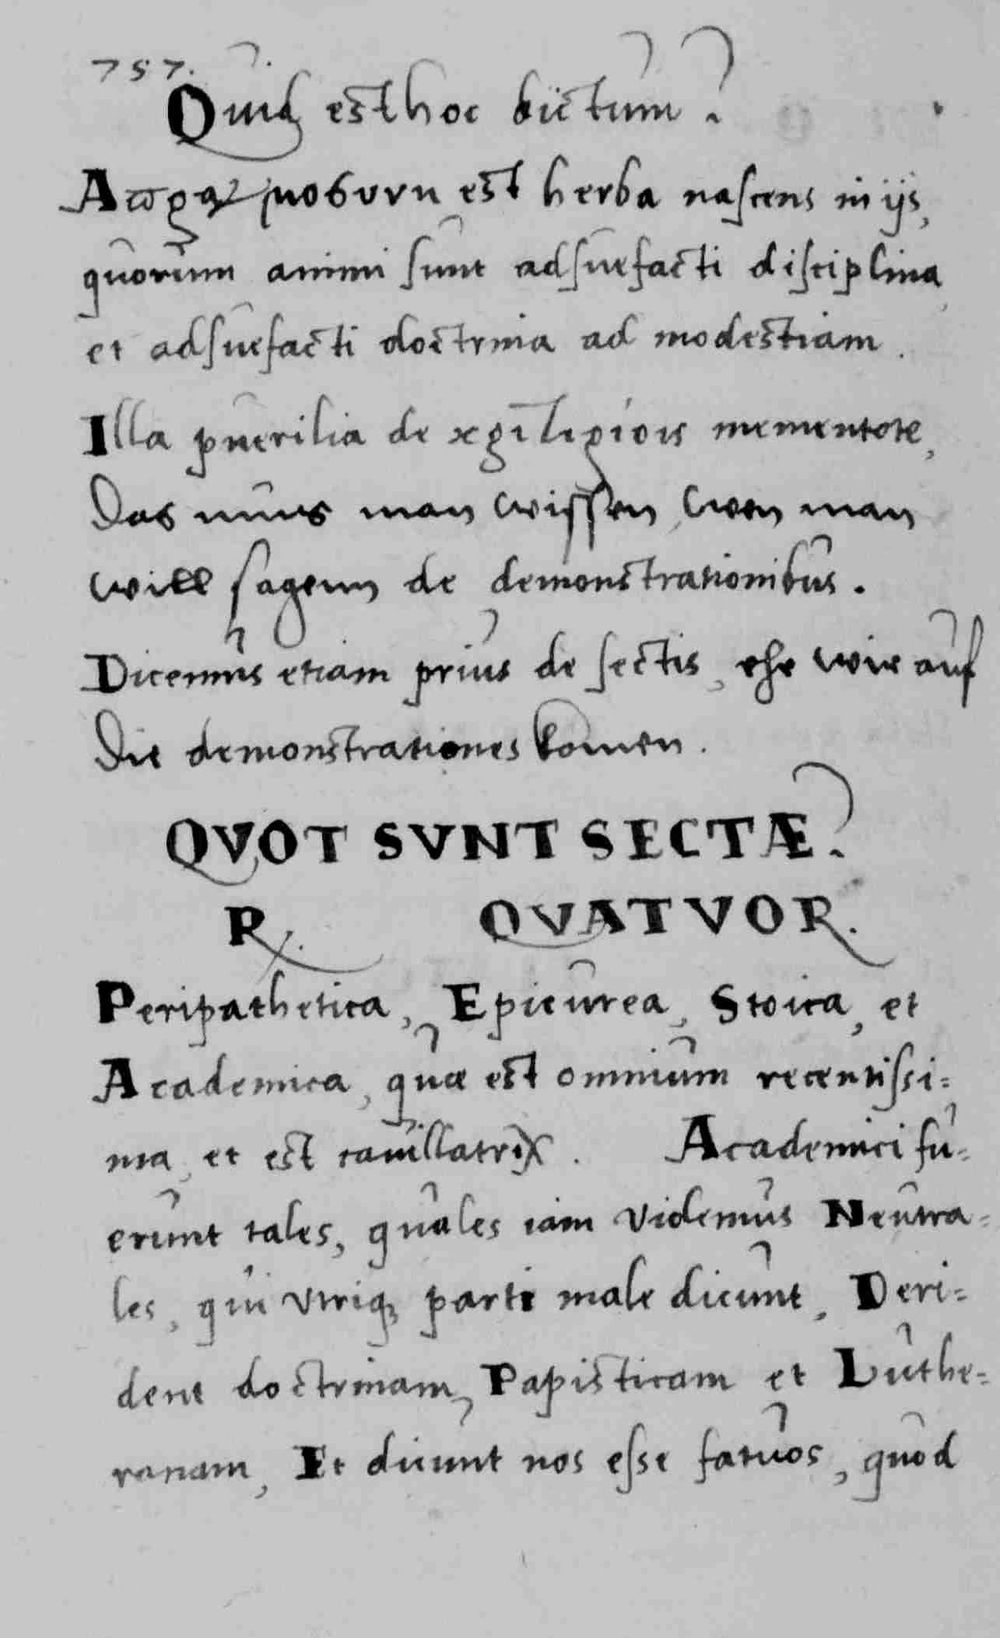 757.
Quid est hoc dictum?
est herba nascens in ijs,
quorum animi sunt adsuefacti disciplina
et adsuefacti doctrina ad modestiam.
Illa puerilia de mementote,
Das mus man wissen, wen man
will sagenn de demonstrationibus.
Dicemus etiam prius de sectis, ehe wir auf
die demonstrationes komen.
QVOT SVNT SECTÆ?
R. QVATVOR.
Peripathetica, Epicurea, Stoica, et
Academica, quæ est omnium recentissi=
ma, et est cauillatrix. Academici fu=
erunt tales, quales iam videmus Neutra=
les, qui vtriq; parti male dicunt, Deri=
dent doctrinam, Papisticam et Luthe=
ranam, Et dicunt nos esse fatuos, quod